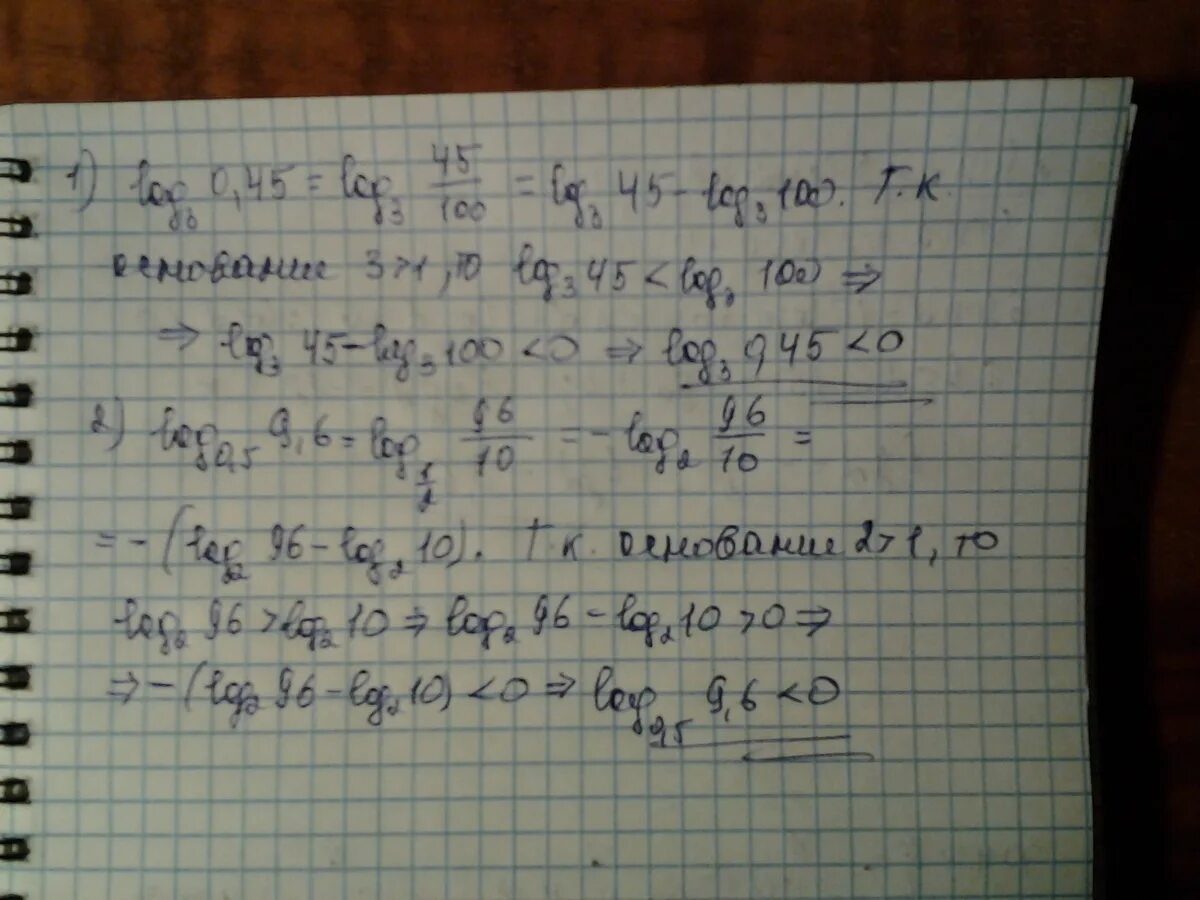 1) log₃ 0,45 = log₃ 45/100 = log₃ 45 - log₃ 100. Т.к.
основание 3>1, то log₃ 45 < log₃ 100 ⇒
⇒ log₃ 45 - log₃ 100 <0 ⇒ log₃ 0,45 <0
2) log₀,₅ 9,6 = log_{1/2} 96/10 = - log₂ 96/10 =
= - (log₂ 96 - log₂ 10). Т.к. основание 2>1, то
log₂ 96 > log₂ 10 ⇒ log₂ 96 - log₂ 10 >0 ⇒
⇒ - (log₂ 96 - log₂ 10) <0 ⇒ log₀,₅ 9,6 <0